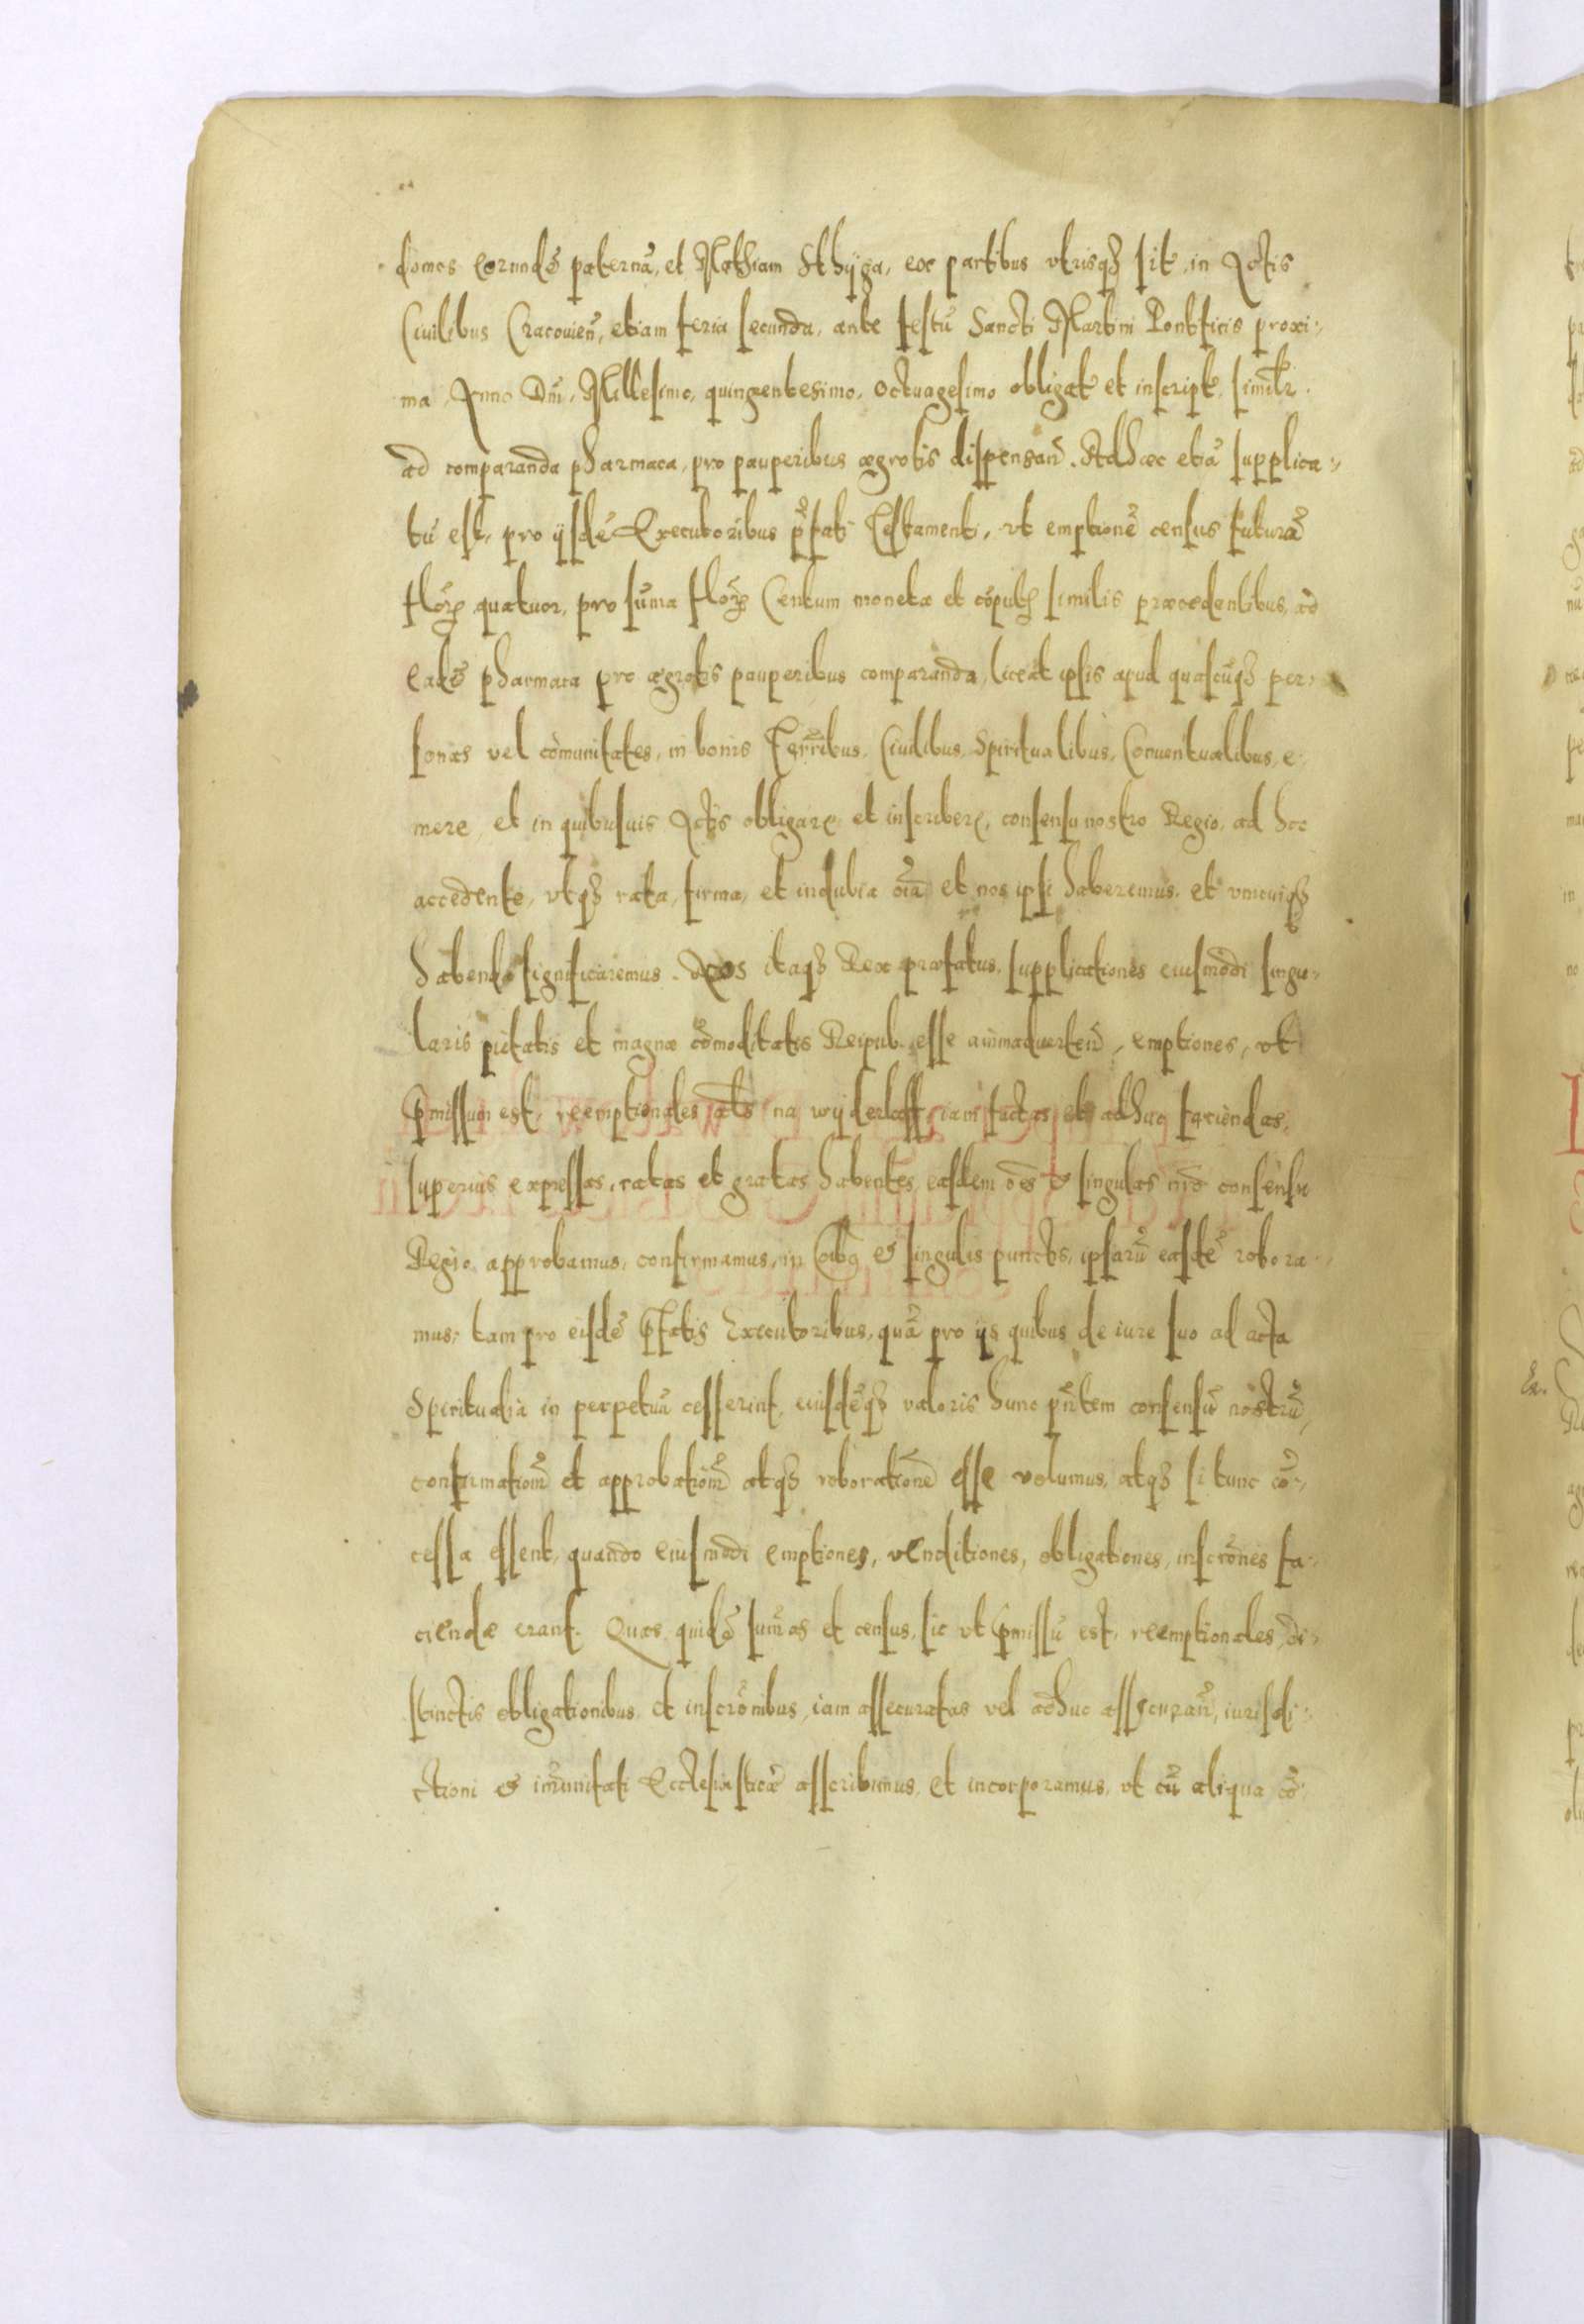 domos eorundē paternā, et Mathiam Sthÿga, ex partibus vtrisq₃ sit, in Actis
Ciuilibus Cracouień, etiam feria secunda, ante festū Sancti Martini Pontificis proxi-
ma, Anno Dn̄i, Millesimo, quingentesimo, octuagesimo obligat et inscript, similr̄
ad comparanda pharmaca, pro pauperibus ægrotis dispensań. Adhæc etiā supplica-
tū est, pro ijsdē Executoribus p̄fati Testamenti, vt emptionē census futurā
florꝝ quatuor, pro sum̄a florꝝ Centum monetæ et cōputꝭ similis præcedentibus, ad
eadē pharmaca pro ægrotis pauperibus comparanda, liceat ipsis apud quascūq₃ per-
sonas vel cōmunitates, in bonis Terr̄ibus, Ciuilibus, Spiritualibus, Conuentualibus, e-
mere, et in quibusuis Actis obligarꝭ et inscriberꝭ, consensu nostro Regio, ad hoc
accedente, vtq₃ rata, firma, et indubia oīa et nos ipsi haberemus, et vnicuiq₃
habenda significaremus. Nos itaq₃ Rex præfatus, supplicationes eiusmodi singu-
laris pietatis et magnæ cōmoditatis Reipub. esse animaduerteń, emptiones, vt
p̄missum est, reemptionales al̄s na wÿderkaff, iam factas et adhuc faciendas,
superius expressas, ratas et gratas habentes, easdem oēs & singulas nr̄o consensu
Regio approbamus, confirmamus, in oībꝯ & singulis punctis, ipsarū easdē robora-
mus, tam pro eisdē p̄fatis Executoribus, quā pro ijs quibus de iure suo ad acta
Spiritualia in perpetuū cesserint, eiusdēq₃ valoris hunc pn̄tem consensū nostrū,
confirmationē et approbationē atq₃ roborationē esse volumus, atq₃ si tunc cō-
cessa essent, quando eiusmodi emptiones, venditiones, obligationes, inscrōnes fa-
ciendæ erant. Quas quidē sum̄as et census, sic vt p̄missū est, reemptionales, di-
stinctis obligationibus et inscrōnibus, iam assecuratas vel adhuc assecurań, iurisdi-
ctioni & im̄unitati Ecclesiasticæ asscribimus, et incorporamus, vt cū aliqua cō-